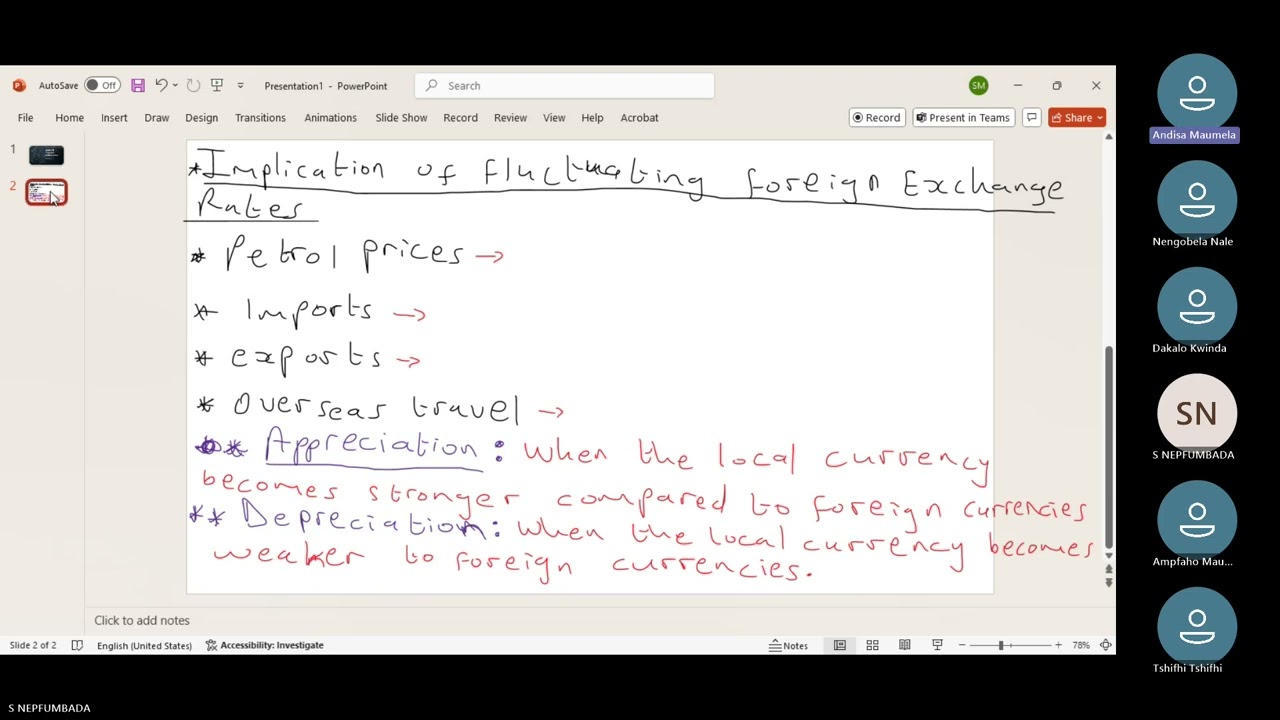 AutoSave Off Presentation1 - PowerPoint Search SM
File Home Insert Draw Design Transitions Animations Slide Show Record Review View Help Acrobat Record Present in Teams Share
1
2
*Implication of fluctuating foreign Exchange
Rates
* Petrol prices →
* Imports →
* exports →
* Overseas travel →
** Appreciation : when the local currency
becomes stronger compared to foreign currencies
** Depreciation: when the local currency becomes
weaker to foreign currencies.
Click to add notes
Slide 2 of 2 English (United States) Accessibility: Investigate Notes 78%
Andisa Maumela
Nengobela Nale
Dakalo Kwinda
SN
S NEPFUMBADA
Ampfaho Mau...
Tshifhi Tshifhi
S NEPFUMBADA